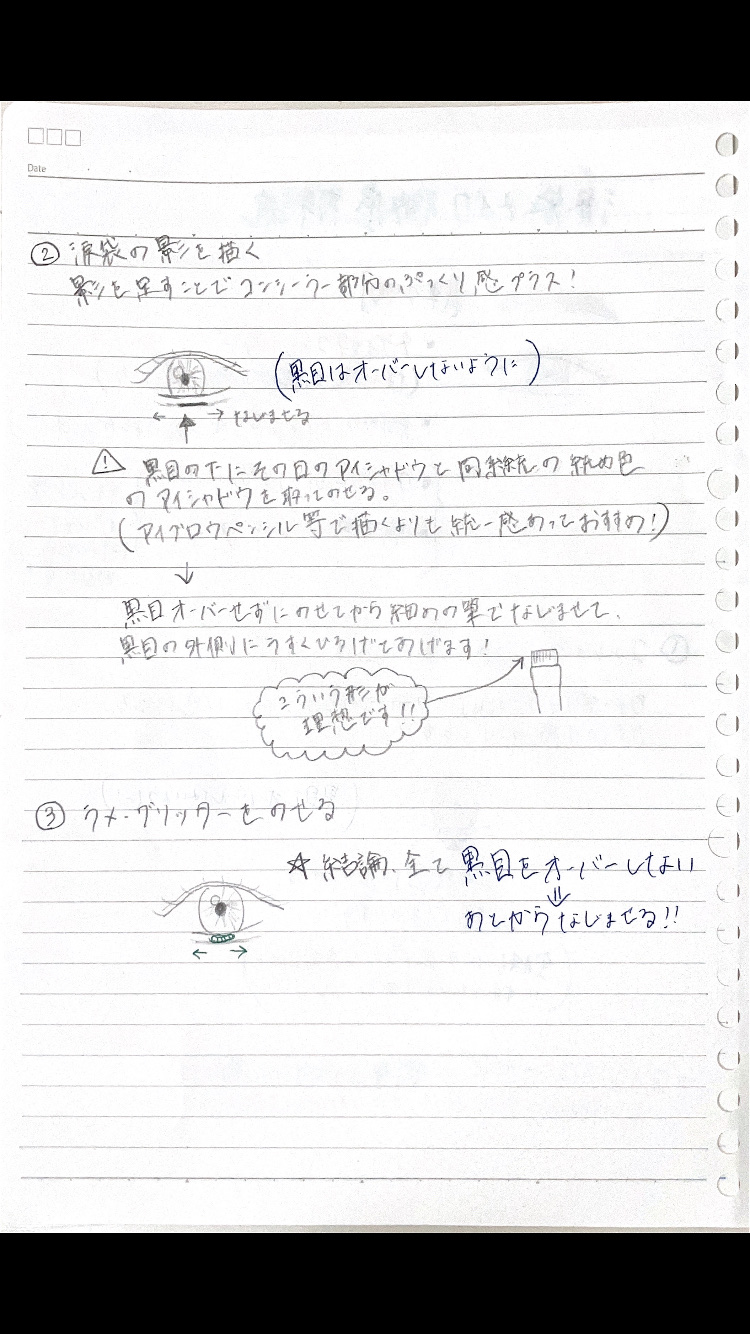 Date
② 涙袋の影を描く
影を足すことでコンシーラー部分のぷっくり感プラス!
(黒目はオーバーしないように)
← → なじませる
⚠ 黒目の下にその日のアイシャドウと同系統の統め色
のアイシャドウを取ってのせる。
(アイブロウペンシル等で描くよりも統一感あっておすすめ!)
↓
黒目オーバーせずにのせてから細めの筆でなじませて、
黒目の外側にうすくひろげてあげます!
こういう形が
理想です!!
③ ラメ・グリッターをのせる
☆ 結論、全て黒目をオーバーしない
⇓
あとからなじませる!!
← →